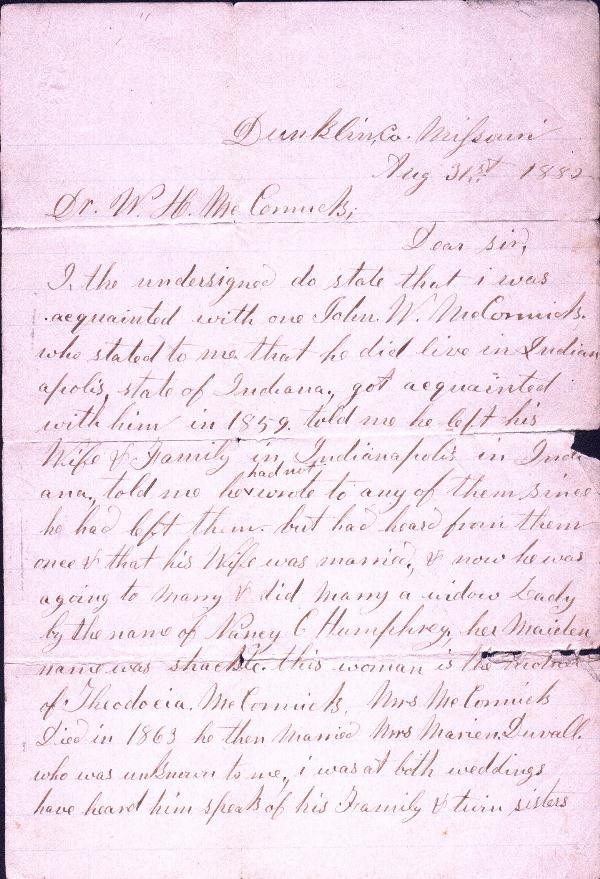 Dunklin, Co. Missouri
Aug 31st 1882
Dr. W. H. McCormick;
Dear sir,
I, the undersigned do state that i was
acquainted with one John. W. McCormick.
who stated to me that he did live in Indian
apolis, state of Indiana., got acquainted
with him in 1859. told me he left his
Wife & Family in Indianapolis in Indi
ana., told me he had not wrote to any of them since
he had left them. but had heard from them
once & that his Wife was married, & now he was
agoing to marry & did marry a widow Lady
by the name of Nancy C Humphrey, her Maiden
name was this woman is the mother
of Theodocia. McCormick, Mrs McCormick
Died in 1863 he then Married Mrs Duvall.
who was unknown to me., i was at both weddings
have heard him speak of his Family & twin sisters